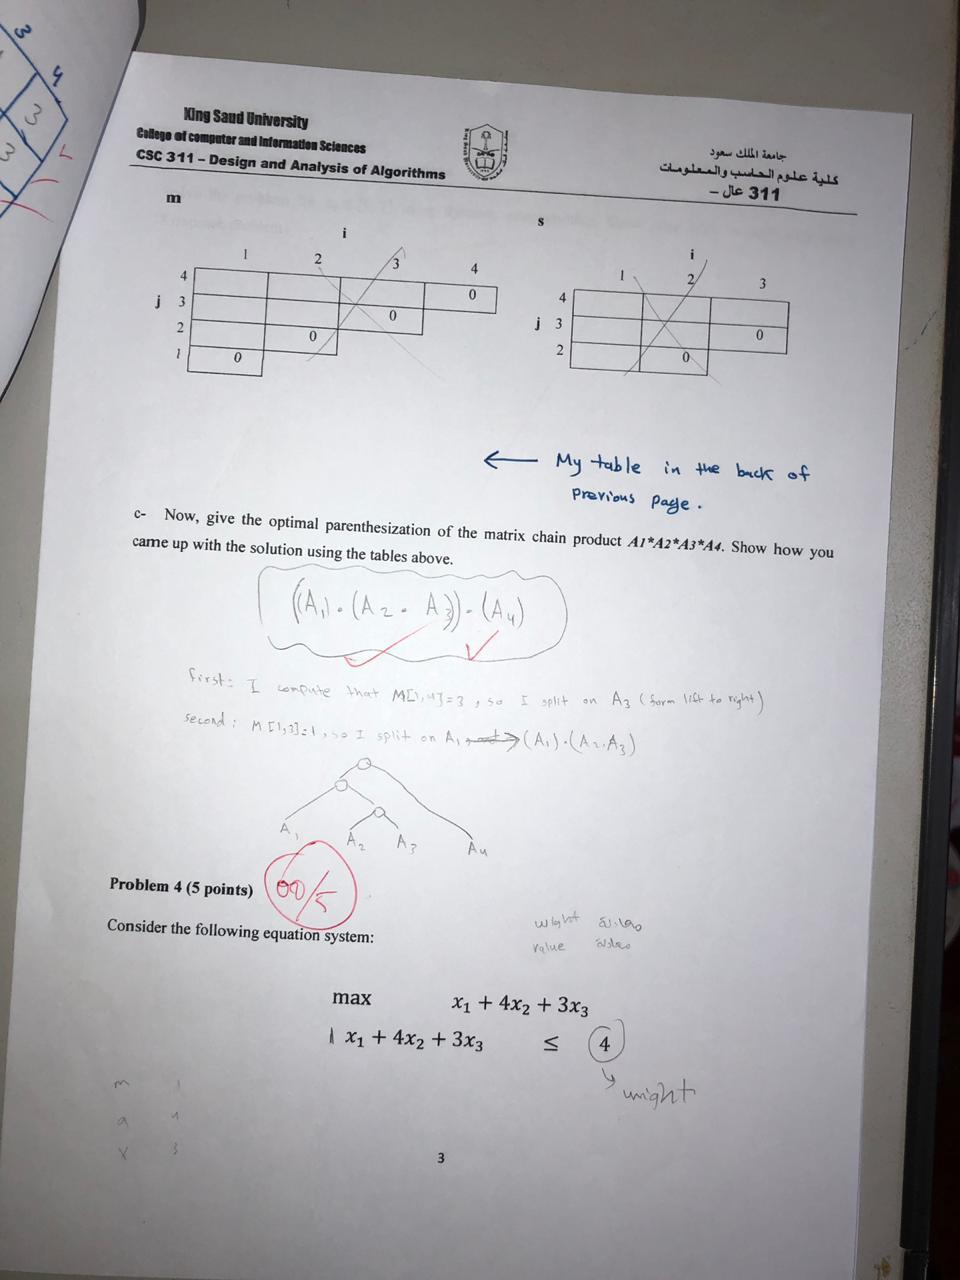 3
4
3
3
King Saud University
College of computer and Information Sciences
CSC 311 – Design and Analysis of Algorithms
جامعة الملك سعود
كلية علوم الحاسب والمعلومات
311 عال –
m
s
i
i
1 2 3 4
1 2 3
4 0
j 3 0
2 0
1 0
4
j 3 0
2 0
← My table in the back of
Previous page.
c- Now, give the optimal parenthesization of the matrix chain product A1*A2*A3*A4. Show how you
came up with the solution using the tables above.
((A₁ · (A₂ · A₃)) · (A₄)
first: I compute that M[1,4]=3, so I split on A₃ (form lift to right)
second: M[1,3]=1, so I split on A₁ → (A₁)·(A₂.A₃)
A₁ A₂ A₃ A₄
Problem 4 (5 points)
Consider the following equation system:
wight
value
max x₁ + 4x₂ + 3x₃
1 x₁ + 4x₂ + 3x₃ ≤ 4
wight
m 1
a 4
x 3
3